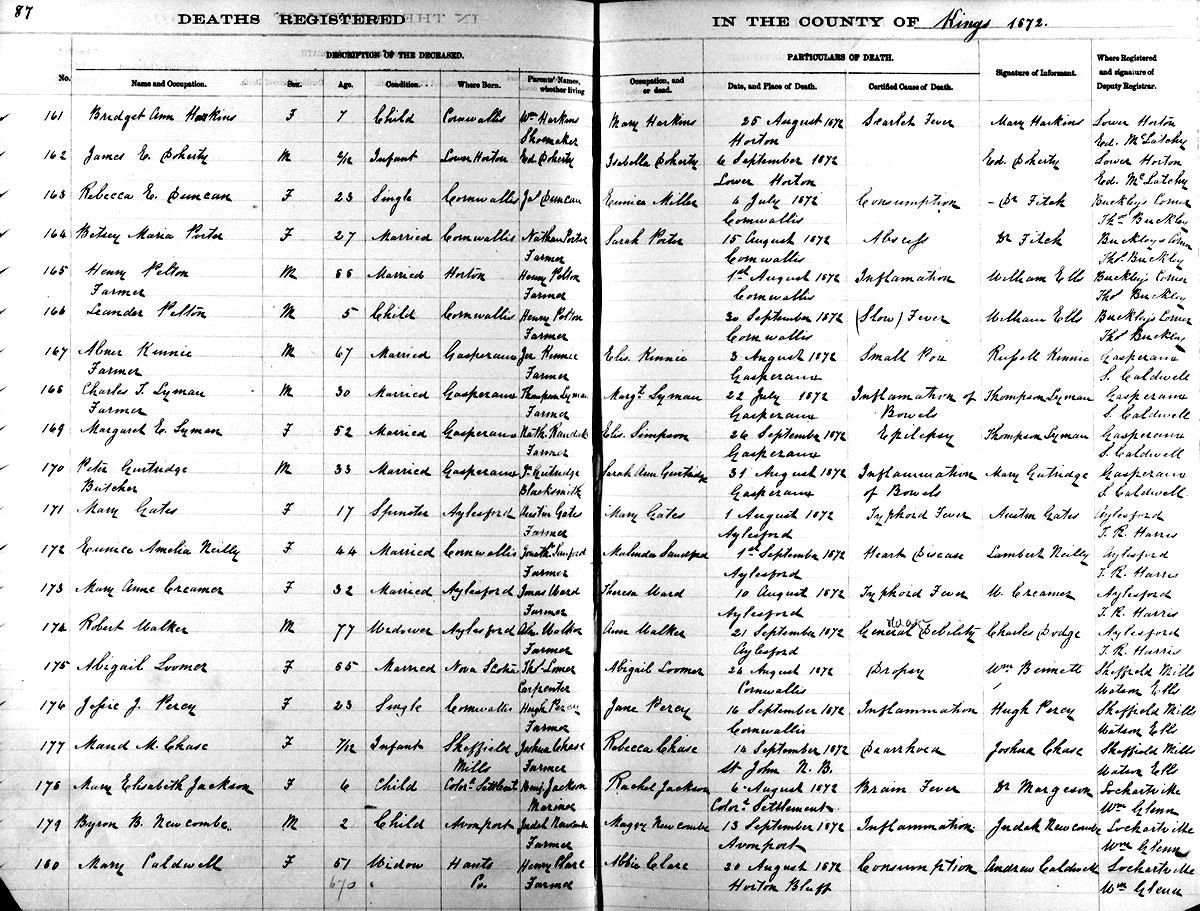 87
DEATHS REGISTERED IN THE COUNTY OF Kings 1872.
DESCRIPTION OF THE DECEASED. PARTICULARS OF DEATH.
No. Name and Occupation. Sex. Age. Condition. Where Born. Parents' Names, whether living Occupation, and or dead. Date, and Place of Death. Certified Cause of Death. Signature of Informant. Where Registered and signature of Deputy Registrar.
161 Bridget Ann Harkins F 7 Child Cornwallis Wm Harkins Mary Harkins 25 August 1872 Scarlet Fever Mary Harkins Lower Horton
Shoemaker Horton Ed. McLatchy
162 James E. Doherty M 2/12 Infant Lower Horton Ed. Doherty Isabella Doherty 6 September 1872 Ed. Doherty Lower Horton
Lower Horton Ed. McLatchy
163 Rebecca E. Duncan F 23 Single Cornwallis Js Duncan Eunice Miller 4 July 1872 Consumption Dr Fitch Buckleys Corner
Cornwallis Thos. Buckley
164 Betsey Maria Porter F 27 Married Cornwallis Nathan Porter Sarah Porter 15 August 1872 Abscess Dr Fitch Buckleys Corner
Farmer Cornwallis Tho. Buckley
165 Henry Pelton M Married Horton Henry Pelton 1st August 1872 Inflamation William Ells Buckleys Corner
Farmer Farmer Cornwallis Thos Buckley
166 Leander Pelton M 5 Child Cornwallis Henry Pelton 30 September 1872 (Slow) Fever William Ells Buckleys Corner
Farmer Cornwallis Thos Buckley
167 Abner Kinnie M 67 Married Gasperaux Kinnie Elis. Kinnie 3 August 1872 Small Pox Russell Kinnie Gasperaux
Farmer Farmer Gasperaux S. Caldwell
168 Charles T. Lyman M 30 Married Gasperaux Thompson Lyman Margt. Lyman 22 July 1872 Inflamation of Thompson Lyman Gasperaux
Farmer Farmer Gasperaux Bowels S. Caldwell
169 Margaret E. Lyman F 52 Married Gasperaux Nath. Elis. Simpson 26 September 1872 Epilepsy Thompson Lyman Gasperaux
Farmer Gasperaux S. Caldwell
170 Peter Gurtridge M 33 Married Gasperaux Gutridge Sarah Ann Gurtridge 31 August 1872 Inflammation Mary Gutridge Gasperaux
Butcher Blacksmith Gasperaux of Bowels S. Caldwell
171 Mary Gates F 17 Spinster Aylesford Austin Gates Mary Gates 1 August 1872 Typhoid Fever Austin Gates Aylesford
Farmer Aylesford T. R. Harris
172 Eunice Amelia Neilly F 44 Married Cornwallis Malinda Sandford 1st September 1872 Heart Disease Lambert Neilly Aylesford
Farmer Aylesford T. R. Harris
173 Mary Anne Creamer F 32 Married Aylesford Jonas Ward Theresa Ward 10 August 1872 Typhoid Fever W. Creamer Aylesford
Farmer Aylesford T. R. Harris
174 Robert Walker M 77 Widower Aylesford Alex Walker Ann Walker 21 September 1872 General Debility Charles Dodge Aylesford
Farmer Aylesford T. R. Harris
175 Abigail Loomer F 65 Married Nova Scotia Thos. Lomer Abigail Loomer 24 August 1872 Dropsy Wm Bennett Sheffield Mills
Carpenter Cornwallis Watson Ells
176 Jessie J. Percy F 23 Single Cornwallis Hugh Percy Jane Percy 16 September 1872 Inflammation Hugh Percy Sheffield Mills
Farmer Cornwallis Watson Ells
177 Maud M. Chase F 7/12 Infant Sheffield Joshua Chase Rebecca Chase 14 September 1872 Diarrhoea Joshua Chase Sheffield Mills
Mills Farmer St John N. B. Watson Ells
178 Mary Elisabeth Jackson F 6 Child Colord. Settlemt Benj. Jackson Rachel Jackson 6 August 1872 Brain Fever Dr Margeson Lockartville
Mariner Colord. Settlement Wm Glenn
179 Byron B. Newcombe M 2 Child Avonport Judah Newcombe Magy Newcombe 13 September 1872 Inflammation Judah Newcomb Lockartville
Farmer Avonport Wm Glenn
180 Mary Caldwell F 51 Widow Hants Henry Clare Abbie Clare 20 August 1872 Consumption Andrew Caldwell Lockartville
670 Co. Farmer Horton Bluff Wm Glenn